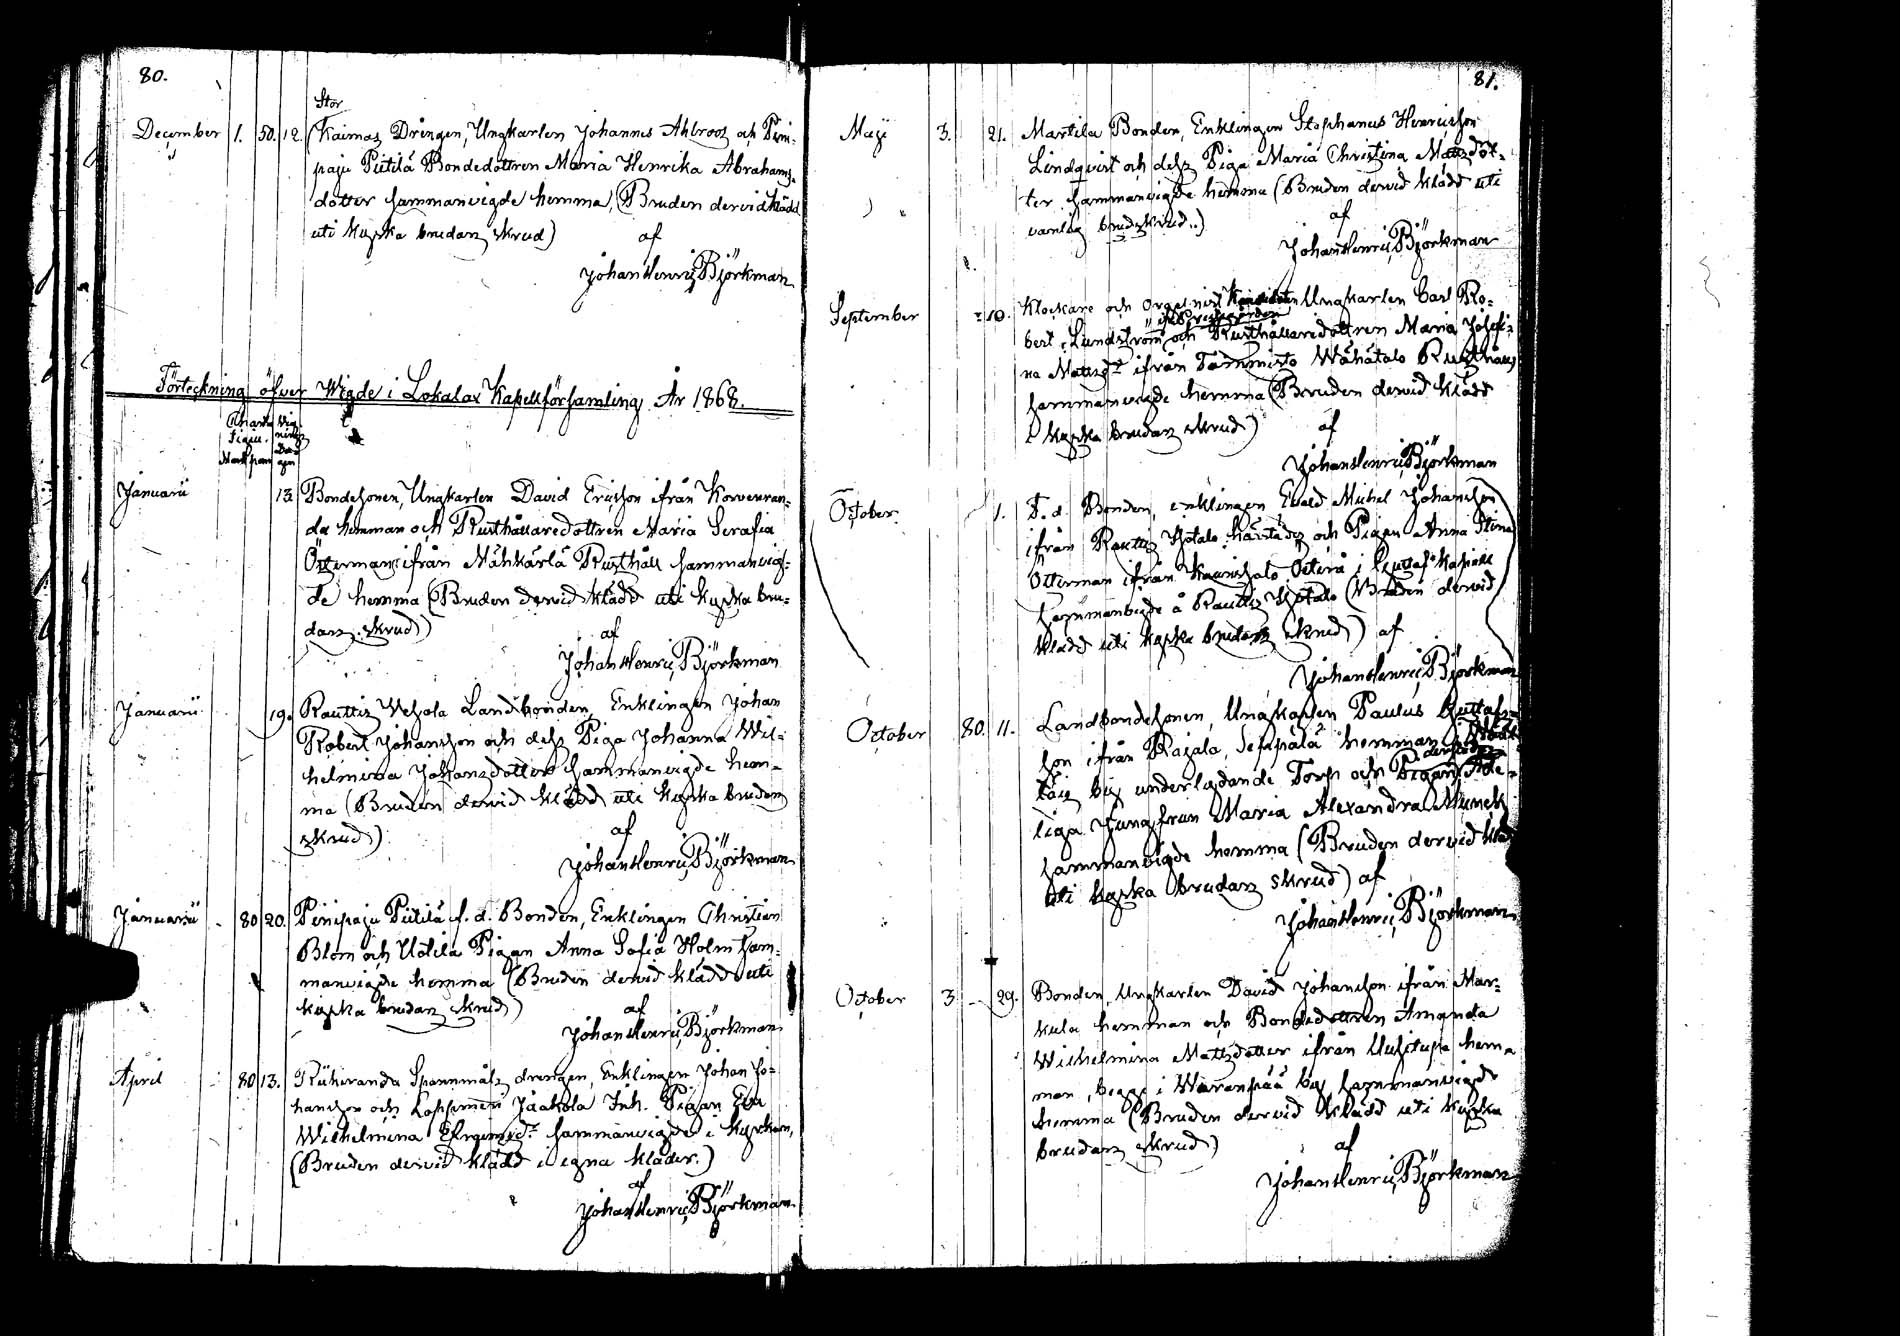 80.
Stor
December 1. 50. 12. Kaimas Drängen, Ungkarlen Johannes Ahlroos och Pini-
paju Piitilä Bondedottren Maria Henrika Abrahams-
dotter sammanvigde hemma, (Bruden dervid klädd
uti kyrka brudar skrud)
af
Johan Henric Björkman
Förteckning öfver Wigde i Lokalax Kapellförsamling År 1868.
Januarii 13. Bondesonen, Ungkarlen David Ericsson ifrån Korvenran-
da hemman och Rusthållaredottren Maria Serafia
Österman ifrån Nähkärlä Rusthåll sammanvig-
de hemma (Bruden dervid klädd uti kyrka bru-
dar skrud)
af
Johan Henric Björkman
Januarii 19. Rauttis Wehola Landbonden, Enklingen Johan
Robert Johansson och dess Piga Johanna Wil-
helmina Johansdotter sammanvigde hem-
ma (Bruden dervid klädd uti kyrka brudar
skrud)
af
Johan Henric Björkman
Januarii 80 20. Pinipaju Piitilä f. d. Bonden, Enklingen Christian
Blom och Uotila Pigan Anna Sofia Holm sam-
manvigde hemma (Bruden dervid klädd uti
kyrka brudar skrud)
af
Johan Henric Björkman
April 80 13. Riihiranda Spannmåls drengen, Enklingen Johan Jo-
hansson och Jaakola Inh. Pigan Eva
Wilhelmina sammanvigde i kyrkan,
(Bruden dervid klädd i egna kläder.)
af
Johan Henric Björkman
81.
Maji 3. 21. Martila Bonden, Enklingen Stephanus Henricsson
Lindqvist och dess Piga Maria Christina Mattsdot-
ter sammanvigde hemma (Bruden dervid klädd uti
vanlig brudskrud..)
af
Johan Henric Björkman
September 10. Klockare och Orgelnist Ungkarlen Carl Ro-
bert Lundström och Rusthållaredottren Maria Josefi-
na Mattsdr ifrån Tammisto Wähätalo Rusthåll
sammanvigde hemma (Bruden dervid klädd
i kyrka brudar skrud)
af
Johan Henric Björkman
October 1. F. d. Bonden, enklingen Evald Michel Johansson
ifrån Rauttis Ylötalo härstädes och Pigan Anna Stina
Österman ifrån i Gustafs Kapell
sammanvigde å Rauttis Ylötalo (Bruden dervid
klädd uti kyrka brudar skrud) af
Johan Henric Björkman
October 80. 11. Landbondesonen, Ungkarlen Paulus Gustafs-
son ifrån Rajala, Seppälä hemman,
by underlydande Torp och Pigan Ade-
liga Jungfrun Maria Alexandra Munck
sammanvigde hemma (Bruden dervid klädd
uti kyrka brudar skrud) af
Johan Henric Björkman
October 3. 29. Bonden, Ungkarlen David Johansson ifrån Mar-
kula hemman och Bondedottren Amanda
Wilhelmina Mattsdotter ifrån Uusitupa hem-
man, begge i Waranpää by sammanvigde
hemma (Bruden dervid klädd uti kyrka
brudar skrud)
af
Johan Henric Björkman